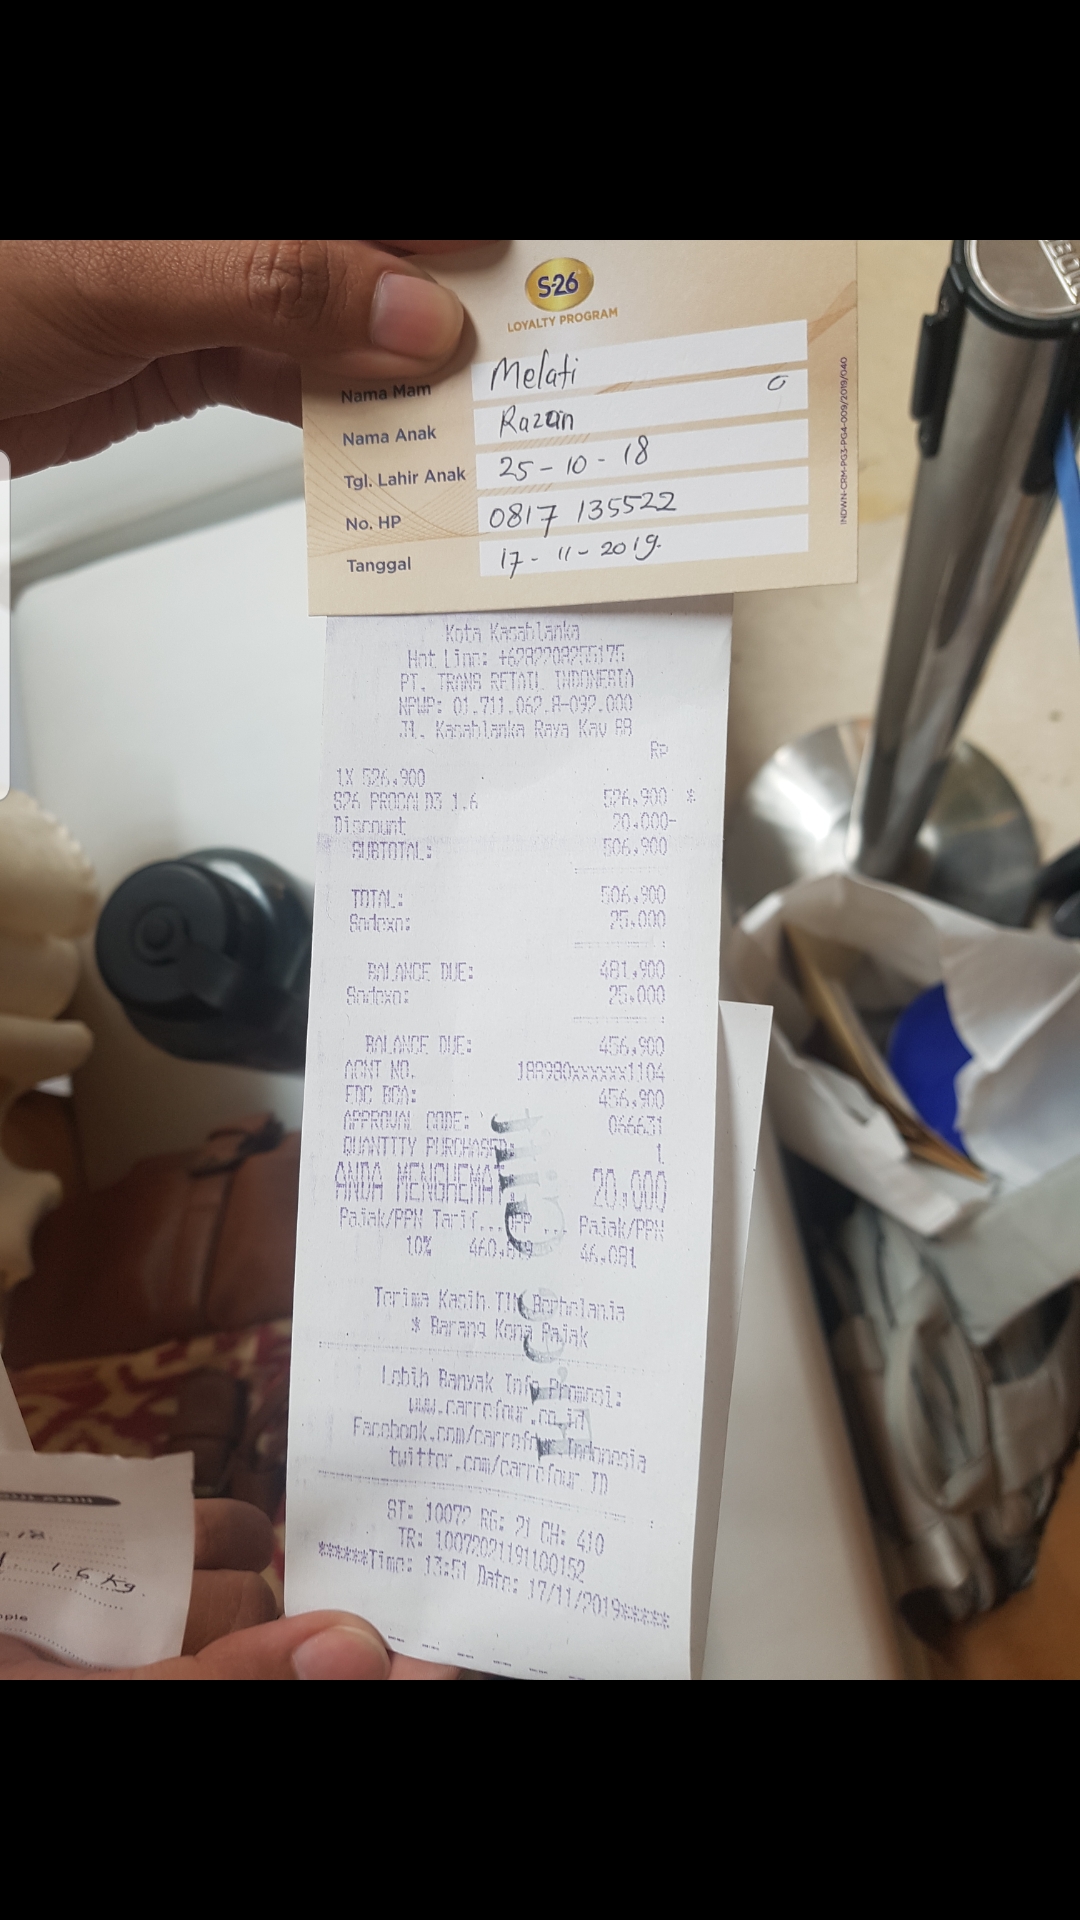 S-26
LOYALTY PROGRAM
Nama Mam Melati
Nama Anak Razan
Tgl. Lahir Anak 25-10-18
No. HP 0817 135522
Tanggal 17-11-2019.
INDWN-CRM-PG3-PG4-009/2019/040
Kota Kasablanka
Hot Line: +6282208255175
PT. TRANS RETAIL INDONESIA
NPWP: 01.711.062.8-092.000
Jl. Kasablanka Raya Kav 88
Rp
1X 526,900
S26 PROCALD3 1.6 526,900 *
Discount 20,000-
SUBTOTAL: 506,900
TOTAL: 506,900
Sodexo: 25,000
BALANCE DUE: 481,900
Sodexo: 25,000
BALANCE DUE: 456,900
ACNT NO. 188980xxxxxx1104
EDC BCA: 456,900
APPROVAL CODE: 066631
QUANTITY PURCHASED: 1
ANDA MENGHEMAT 20,000
Pajak/PPN Tarif...DPP ... Pajak/PPN
10% 460,819 46,081
Terima Kasih
* Barang Kena Pajak
Lebih Banyak Info Promosi:
www.carrefour.co.id
Facebook.com/carrefour.Indonesia
twitter.com/carrefour ID
ST: 10072 RG: 21 CH: 410
TR: 10072021191100152
*****Time: 13:51 Date: 17/11/2019*****
1.6 Kg.